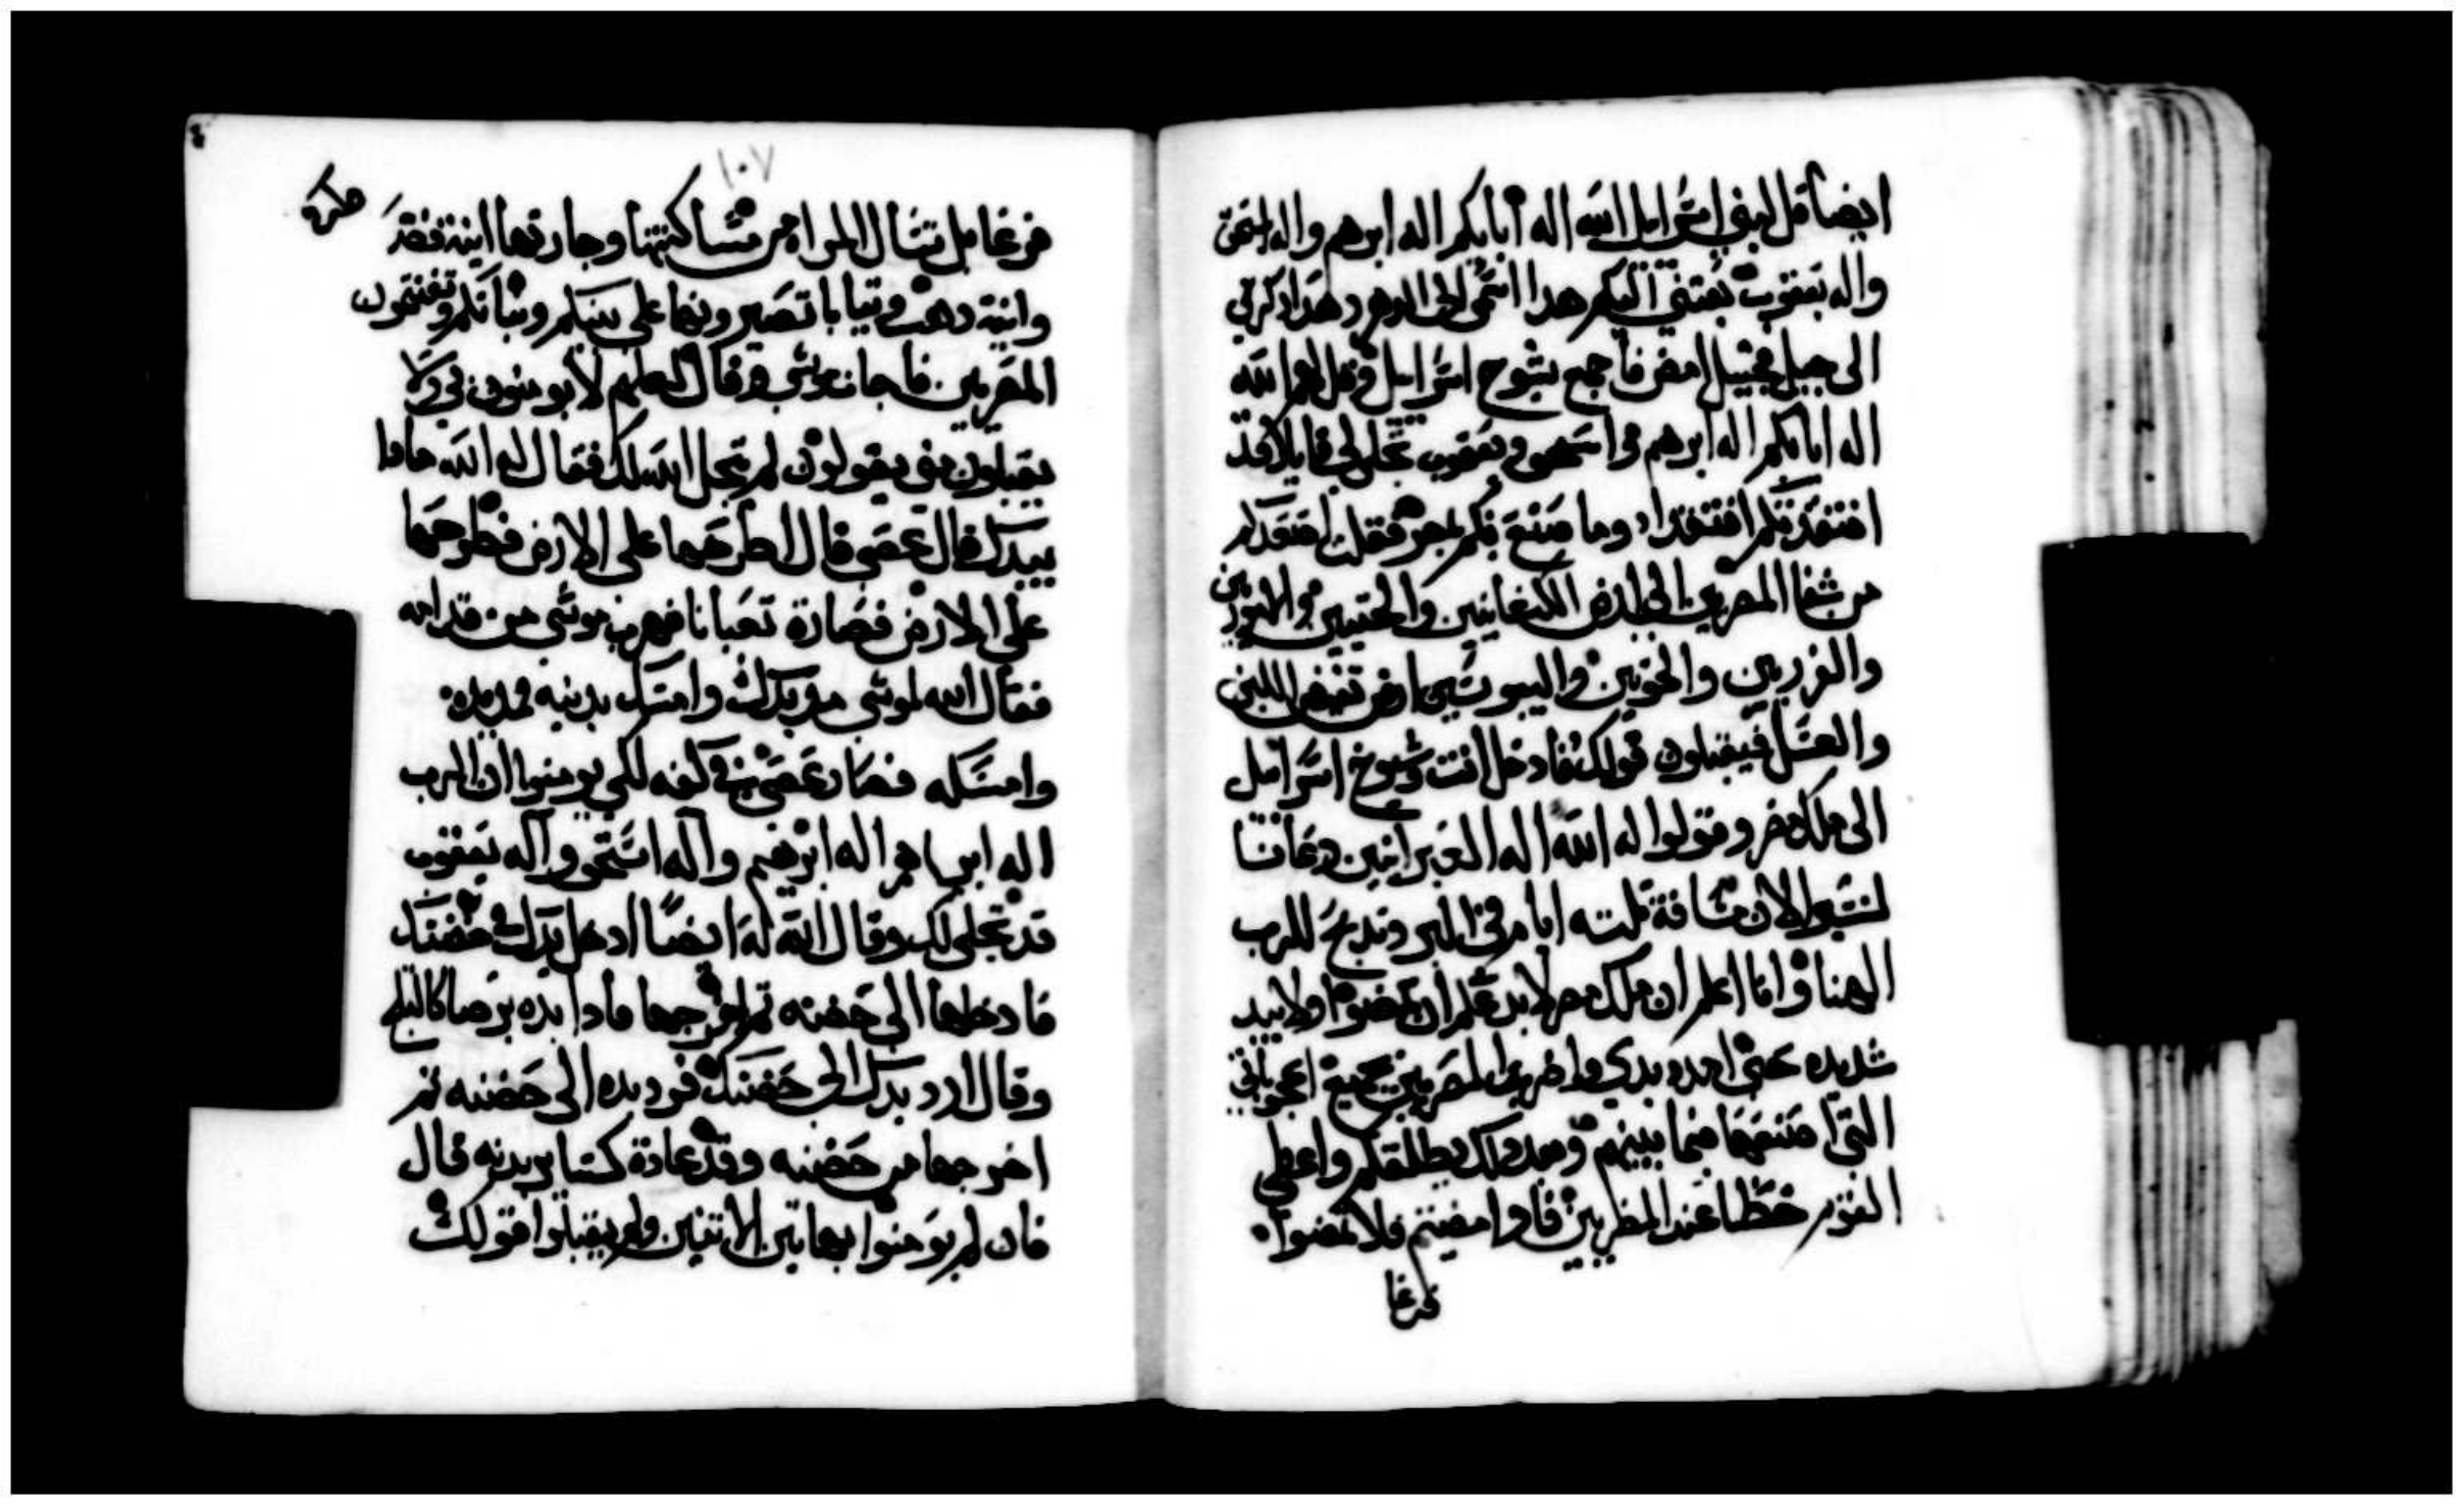 ايضا قل لبني اسرايل الله اله أبايكم اله ابرهم واله اسحق
واله يعقوب بعتني اليكم هدا اسمي الى الدهر وهدا دكري
الى جيل فجيل امض فاجمع شيوخ اسرايل وقل لهم الله
اله ابايكم اله ابرهم واسحق ويعقوب تجلى لي قايلا قد
افتقدتكم افتقدا وما صنع بكم بمصر فقلت اصعدكم
من شقا المصريين الى ارض الكنعانيين والحتيين والاموريين
والفرزيين والحويين واليبوسيين ارض تفيض اللبن
والعسل فيقبلون قولك فادخل انت وشيوخ اسرايل
الى ملك مصر وقولوا له الله اله العبرانيين دعانا
لنسير الان مسافة تلته ايام في البر وندبح للرب
الهنا وانا اعلم ان ملك مصر لا يدعكم ان تمضوا ولا بيد
شديده حتى امدد يدي واضرب المصريين بجميع اعجوباتي
التي اصنعها فيما بينهم وبعد دلك يطلقكم واعطي
القوم حظا عند المصريين فادا مضيتم فلا تمضوا
فرغا
١٠٧
فرغا بل تسال المراه من مساكنتها وجارتها انية فضة
وانية دهب وتيابا تصيرونها على بنيكم وبناتكم وتغنمون
المصريين فاجاب موسى وقال لعلهم لا يومنون بي ولا
يقبلون مني يقولون لم يتجل الله لك فقال له الله ما ما
بيدك قال عصى قال اطرحها على الارض فطرحها
على الارض فصارة تعبانا فهرب موسى من قدامه
فقال الله لموسى مد يدك وامسك بدنبه فمد يده
وامسكه فصار عصى في كفه لكي يومنوا ان الرب
اله اباهم اله ابرهيم واله اسحق واله يعقوب
قد تجلى لك وقال الله له ايضا ادخل يدك في حضنك
فادخلها الى حضنه تم اخرجها فادا يده برصا كالتلج
وقال اردد يدك الى حضنك فرد يده الى حضنه تم
اخرجها من حضنه وقد عادة كساير بدنه قال
فان لم يومنوا بهاتين الايتين ولم يقبلوا قولك